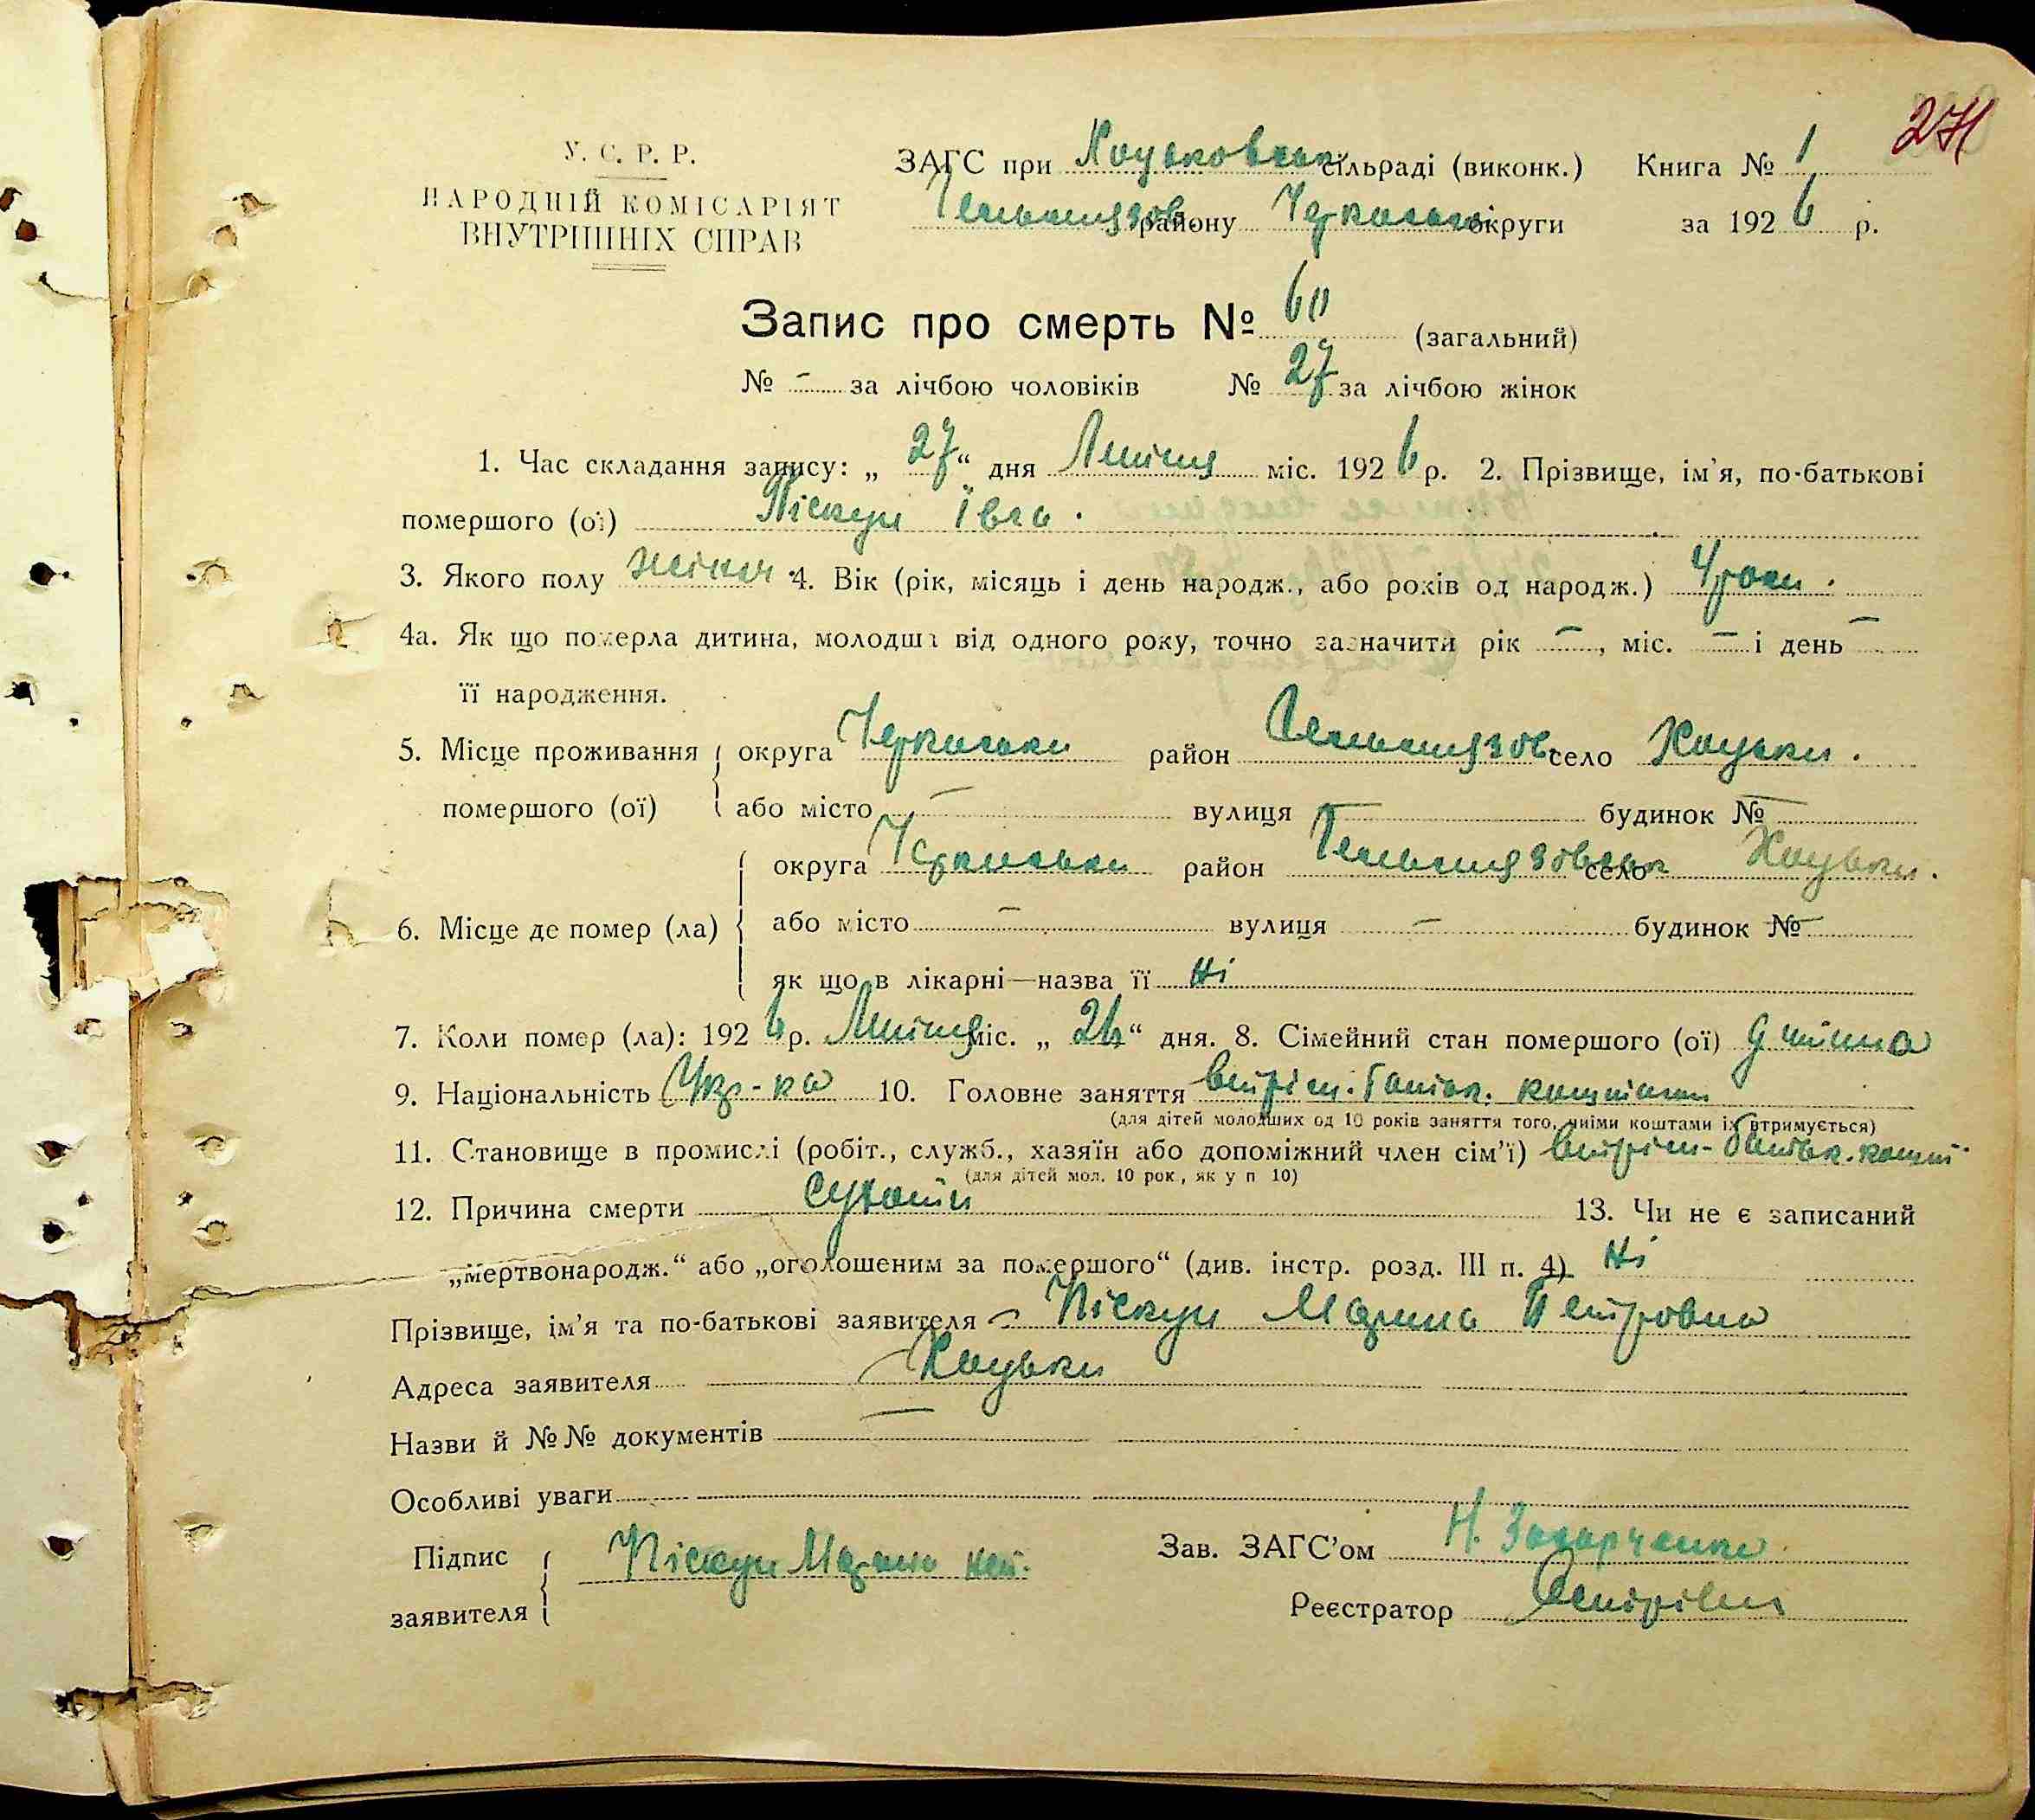 271
У. С. Р. Р.
НАРОДНІЙ КОМІСАРІЯТ
ВНУТРІШНІХ СПРАВ
ЗАГС при Хоцьковськ сільраді (виконк.) Книга № 1
Гельмязов району Черкаської округи за 1926 р.
Запис про смерть № 60 (загальний)
№ – за лічбою чоловіків № 27 за лічбою жінок
1. Час складання запису: „ 27 “ дня Липня міс. 1926 р. 2. Прізвище, ім'я, по-батькові
помершого (ої) Піскун Ївга.
3. Якого полу жіноч. 4. Вік (рік, місяць і день народж., або років од народж.) 4 роки.
4а. Як що померла дитина, молодша від одного року, точно зазначити рік –, міс. – і день –
її народження.
5. Місце проживання округа Черкаськи район Гельмязов село Хоцьки.
помершого (ої) або місто – вулиця – будинок № –
округа Черкаськи район Гельмязовськ село Хоцьки.
6. Місце де помер (ла) або місто – вулиця – будинок № –
як що в лікарні—назва її Ні
7. Коли помер (ла): 1926 р. Липня міс. „ 26 “ дня. 8. Сімейний стан помершого (ої) дитина
9. Національність Укр-ка 10. Головне заняття батьк. коштами
(для дітей молодших од 10 років заняття того, чиїми коштами їх втримується)
11. Становище в промислі (робіт., служб., хазяїн або допоміжний член сім'ї) батьк. кошт
(для дітей мол. 10 рок., як у п 10)
12. Причина смерти Сухоти 13. Чи не є записаний
„мертвонародж.“ або „оголошеним за помершого“ (див. інстр. розд. III п. 4) Ні
Прізвище, ім'я та по-батькові заявителя Піскун Марина Петровна
Адреса заявителя Хоцьки
Назви й №№ документів –
Особливі уваги
Підпис Піскун Марина неп. Зав. ЗАГС'ом Н. Захарченко
заявителя Реєстратор